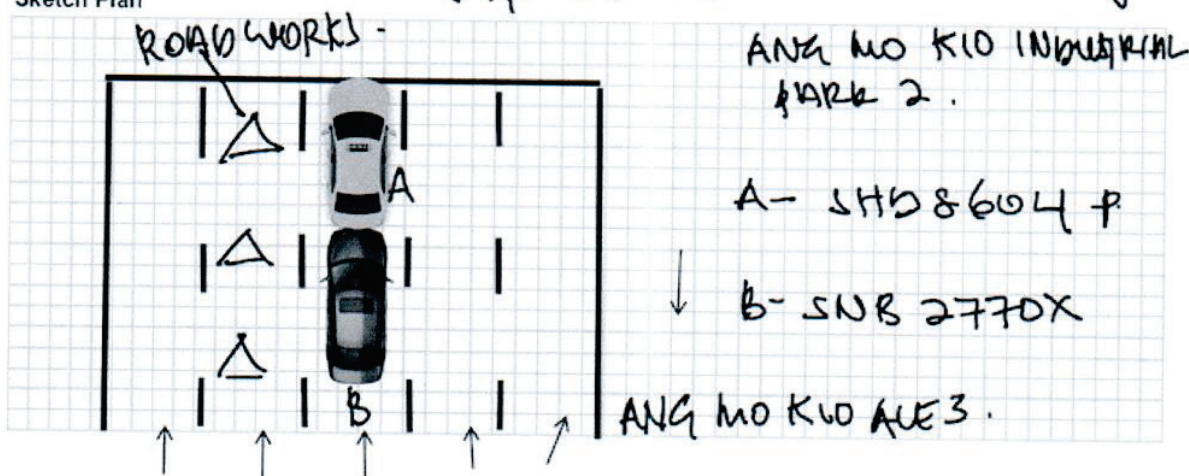 Sketch Plan
ROAD WORKS -
ANG MO KIO INDUSTRIAL
PARK 2.
A
A- SHD8604P
B- SNB 2770X
B
ANG MO KIO AVE 3.